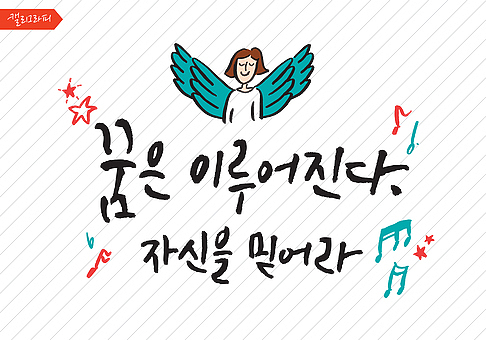 캘리그라피
꿈은 이루어진다.
자신을 믿어라